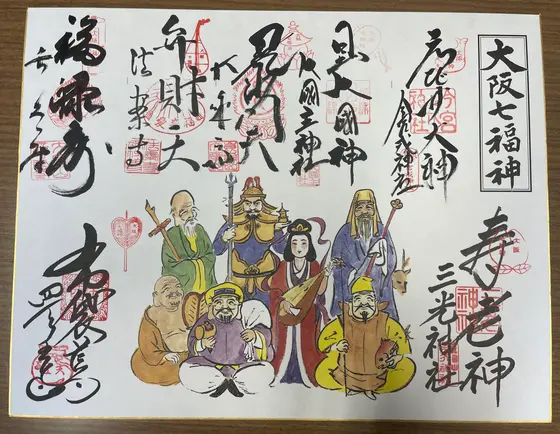 大阪七福神
寿老神
三光神社
大神
今宮戎神社
日出大國神
大國主神社
毘沙門天
大乗坊
弁財天
法案寺
福禄寿
長久寺
布袋尊
四天王寺